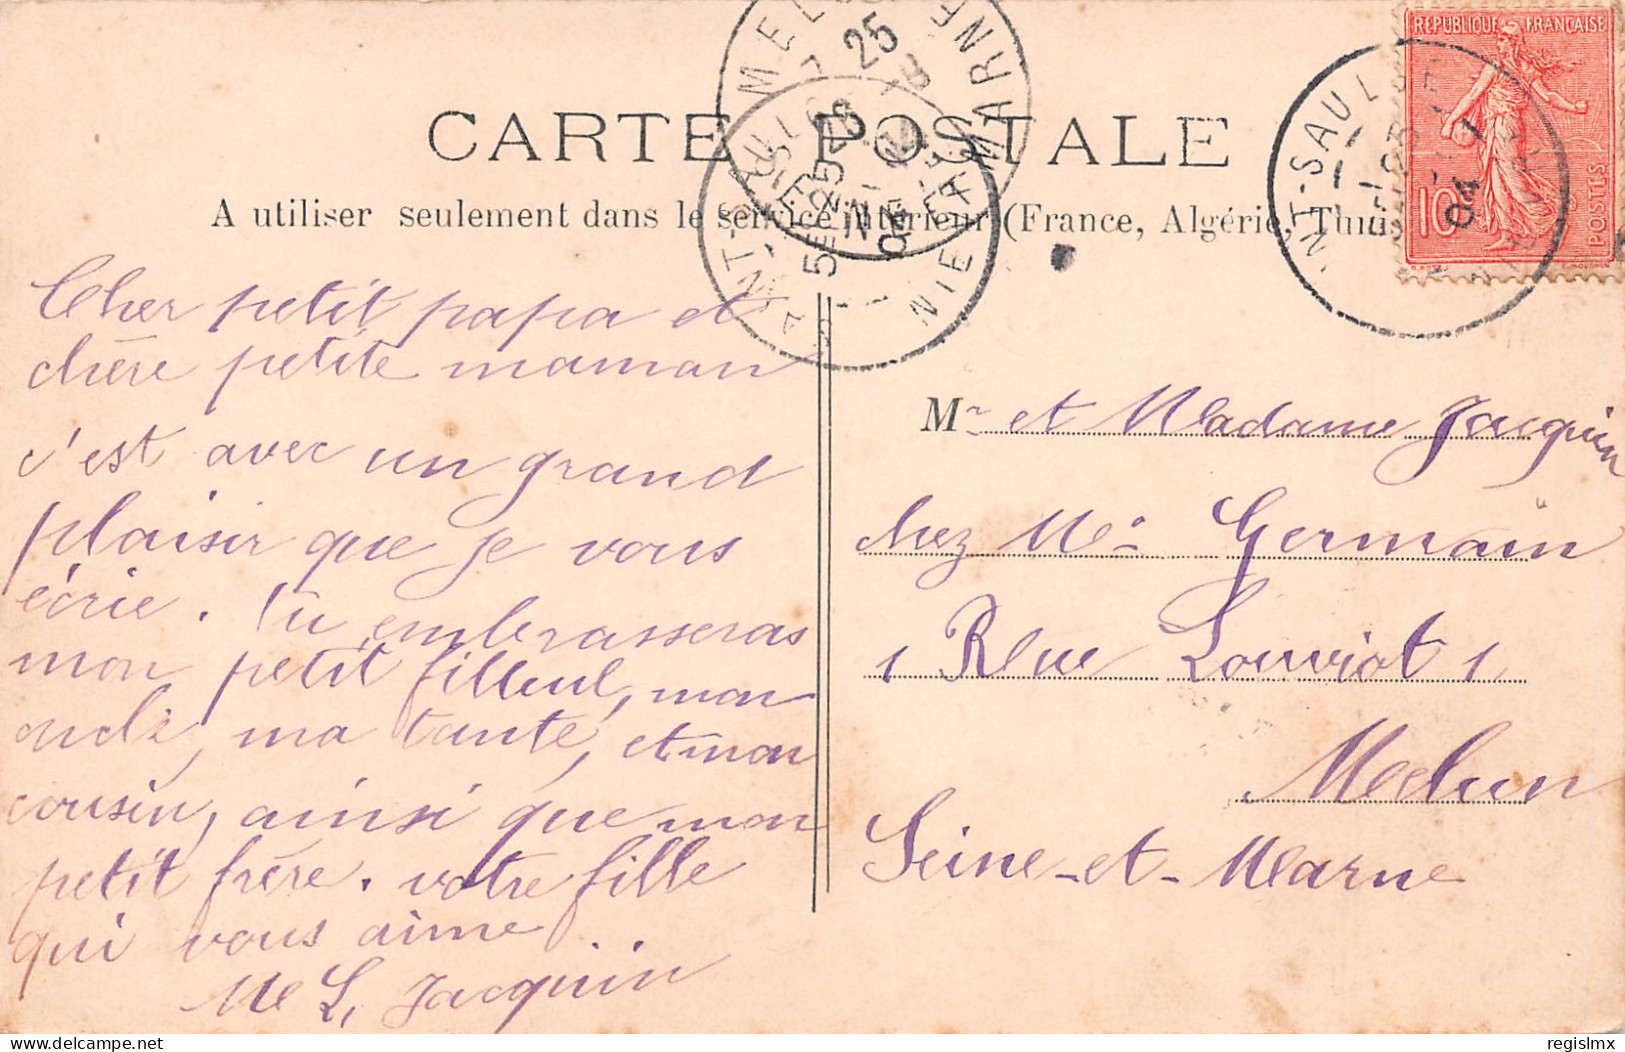 CARTE POSTALE
A utiliser seulement dans le service intérieur (France, Algérie, Tunis
RÉPUBLIQUE FRANÇAISE
10
POSTES
MELUN
7 25
04
SEINE ET MARNE
Cher petit papa et
chère petite maman
c'est avec un grand
plaisir que je vous
écrie. Tu embrasseras
mon petit filleul, mon
oncle, ma tante, et mon
cousin, ainsi que mon
petit frère. votre fille
qui vous aime
Mle L, Jacquin
Mr et Madame Jacquin
chez Mr Germain
1 Rue Louviot 1
Melun
Seine-et-Marne
regislmx